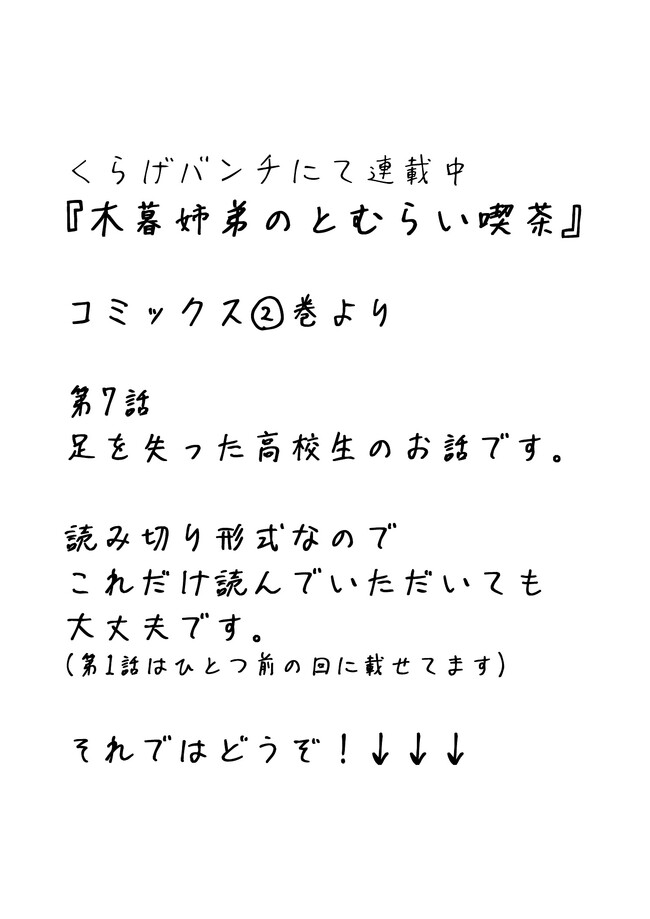 くらげバンチにて連載中
『木暮姉弟のとむらい喫茶』
コミックス②巻より
第7話
足を失った高校生のお話です。
読み切り形式なので
これだけ読んでいただいても
大丈夫です。
(第1話はひとつ前の回に載せてます)
それではどうぞ！↓↓↓